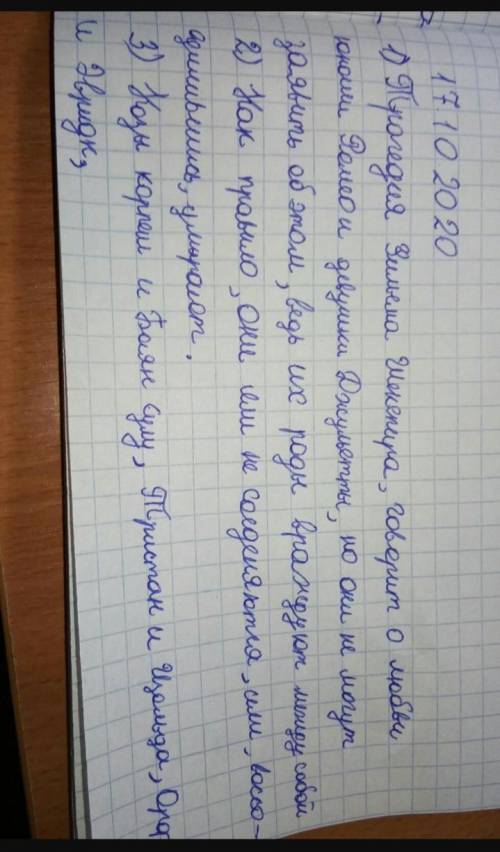 17 10 2020
1) Трагедия Вилема Шекспира, говорит о любви
юноши Ромео и девушки Джульетты, но они не могут
заявить об этом, ведь их роды враждуют между собой
2) Как правило, они или не соединяются, или, воссо-
единившись, умирают.
3) Козы корпеш и Баян сулу, Тристан и Изольда, Орф
и Эвридик,